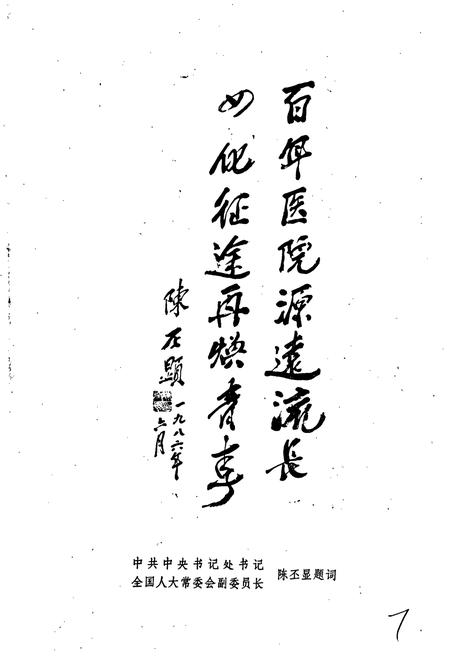 百年医院源遠流長
四化征途再焕青春
陳丕顯
一九八六年
六月
中共中央书记处书记
全国人大常委会副委员长
陈丕显题词
7